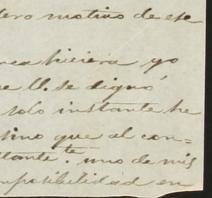 dero motivo de ese
hiciera yo
e U. se dignó
solo instante he
tino que al con=
stante te. uno de mis
mposibilidad en